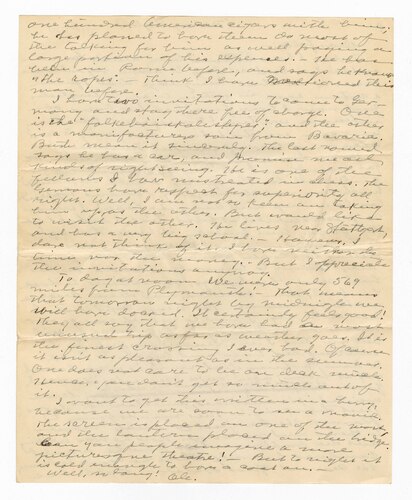 one hundred American cigars with him,
he has planned to have them do most of
the talking for him as well paying a
large portion of his expenses. - He has
been in before, and says he knows
"the ropes". - Think I have mentioned this
man before.
I have two invitations to come to Ger-
many and stay there free of charge. One
is the and the other
is a manufacturer's son from Bavaria.
Both mean it sincerely. The last named
says he has a car, and promises me all
kinds of sightseeing. He is one of the
fellows I
Germans have respect for superiority all
right. Well, I am not so keen on taking
him up as the other. But would like
to visit the other. He lives near
and has a very big school. - However, I
dare not think of it. I have neither the
time nor the money. - But I appreciate
the invitations anyway.
To-day at noon we were only 569
miles from Plymouth. That means
that tomorrow night by midnight we
will have docked. It certainly feels good!
They all say that we have had a most
trip as far as weather goes. It is
the finest crossing I ever had. Of course
it isn't as pleasant as in the summer.
One does not care to lie on deck much.
Hence, one don't get so much out of
it.
I want to get this written in a hurry,
because we are soon to see a movie.
The screen is placed on one of the
and the lantern placed on the bridge.
Can you people imagine a more
picturesque theatre! - But to-night it
is cold enough to have a coat on. -
Well, so long! Ole.